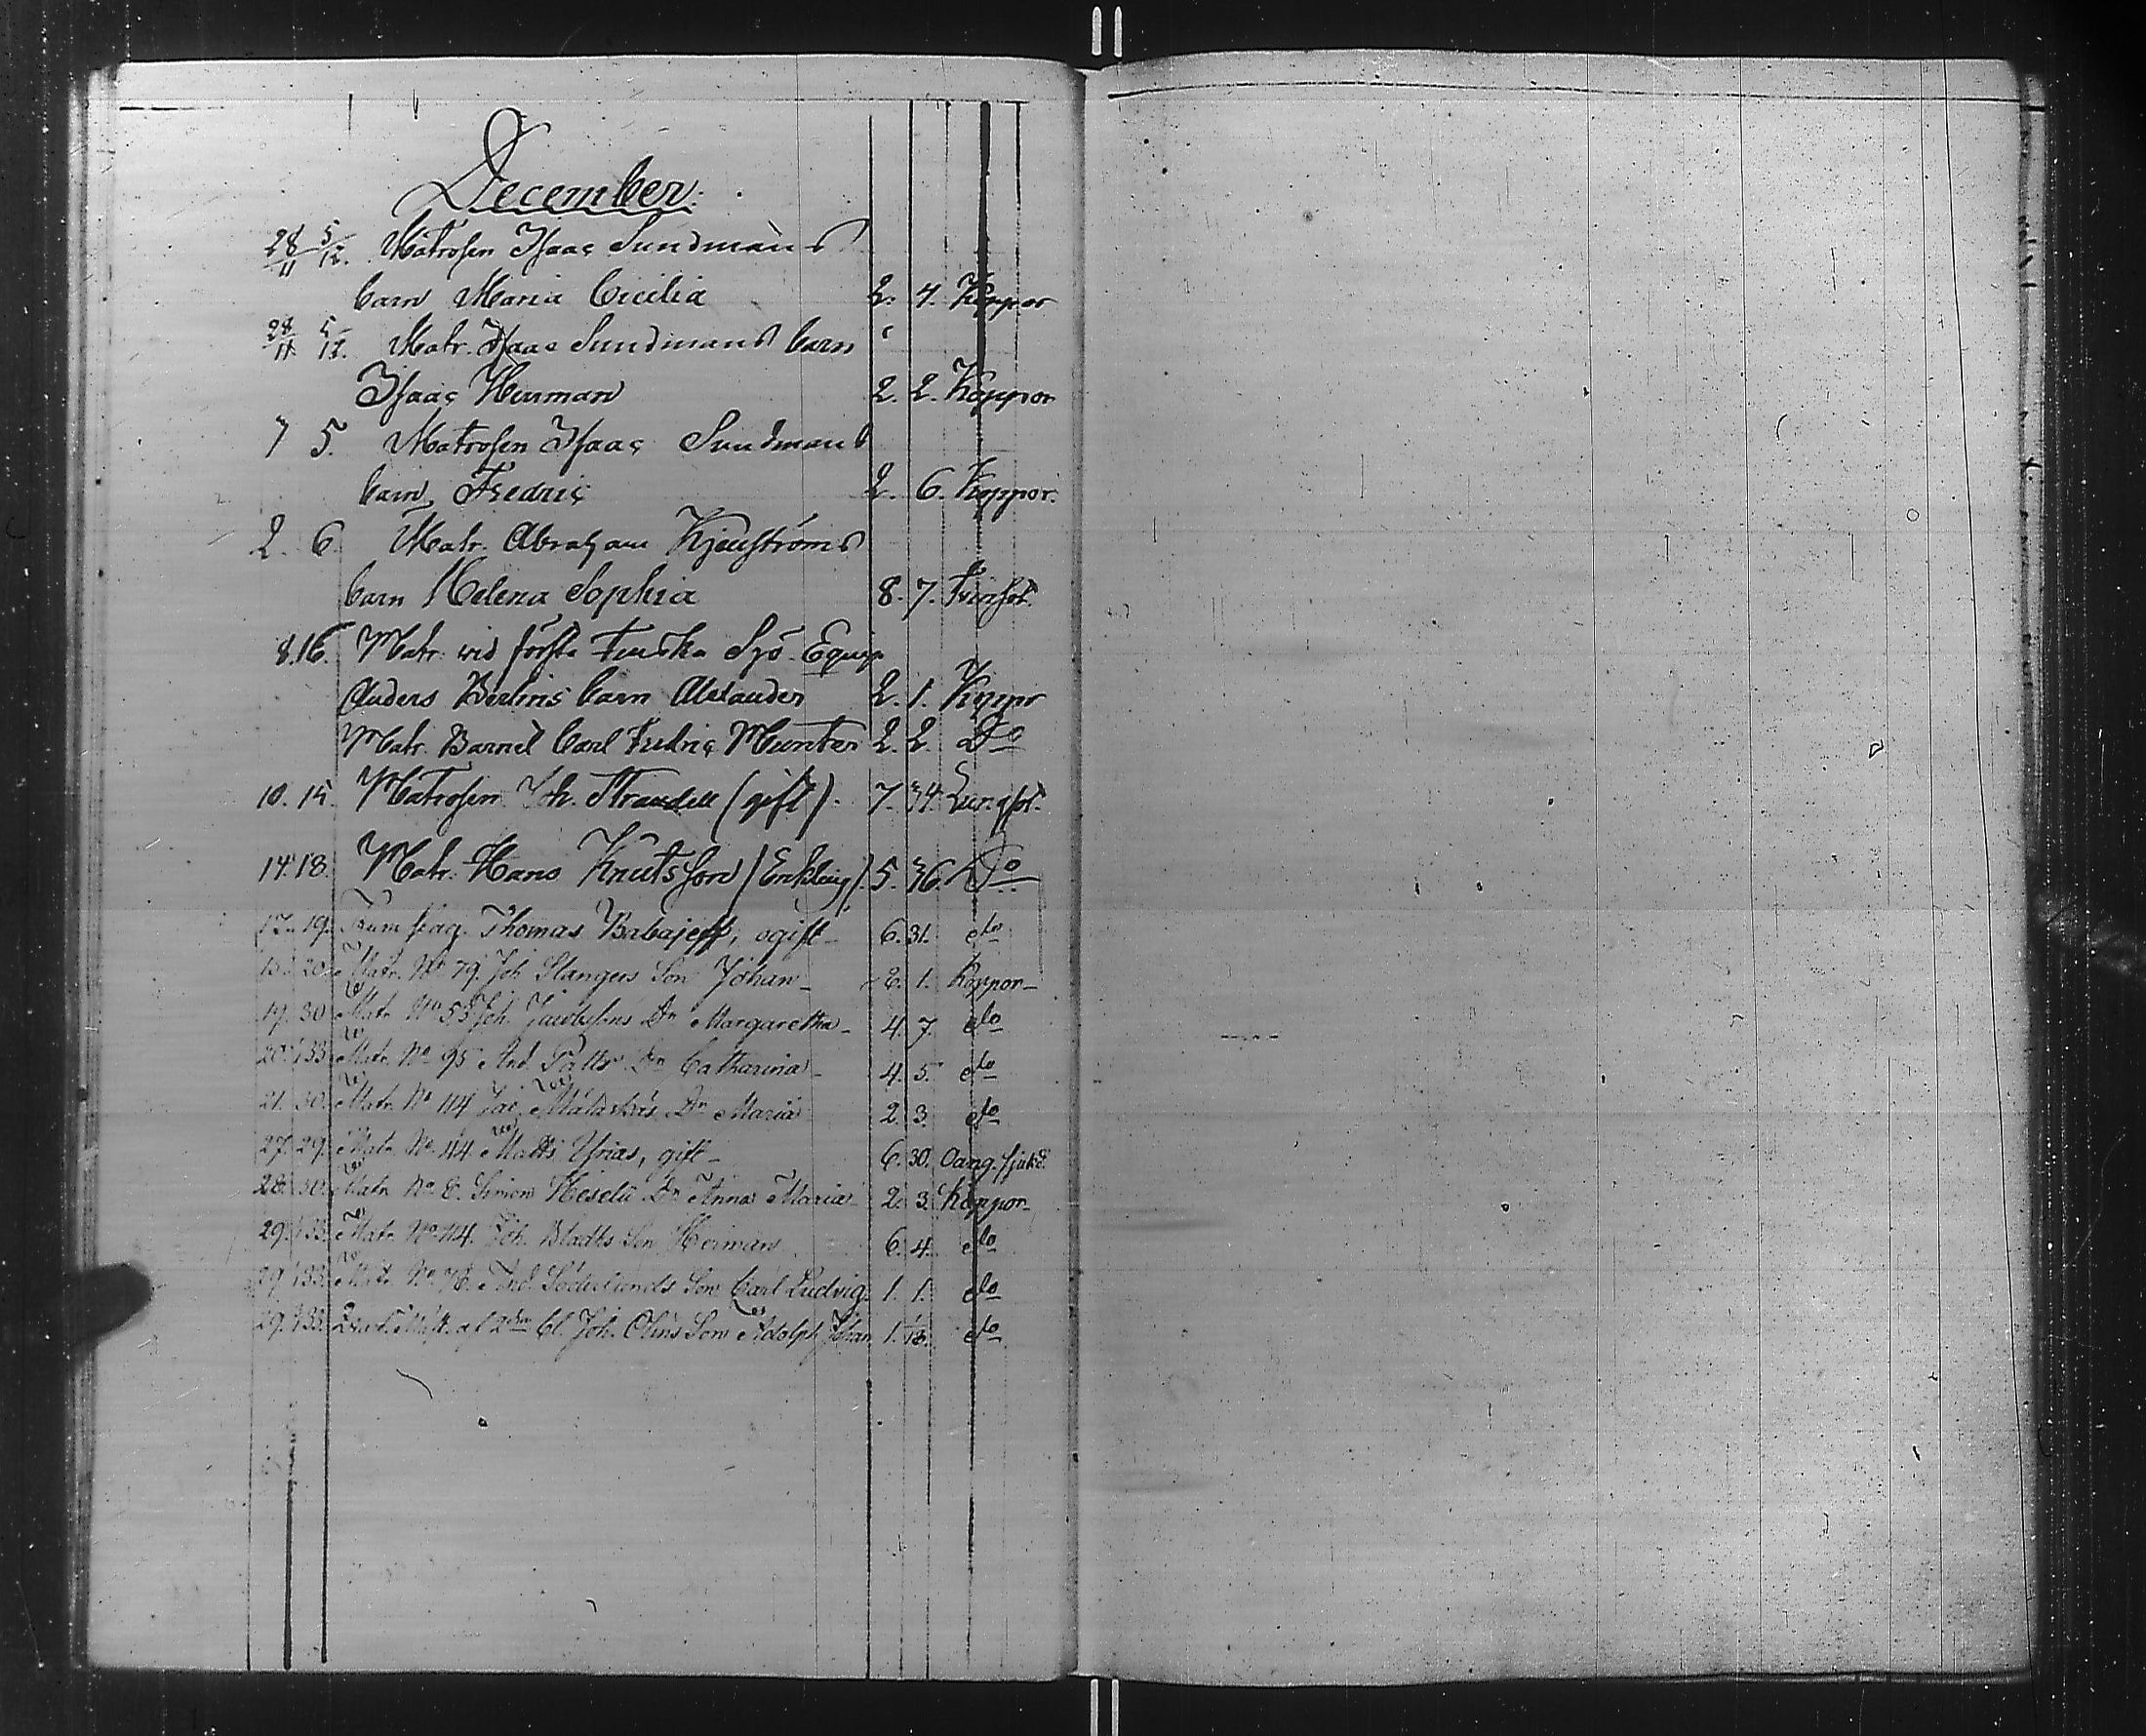 December.
28/11 5/12. Matrosen Isaac Sundmans
barn Maria Cicilia 2. 4. Koppor
28/11 5/12. Matr. Isaac Sundmans barn
Isaac Herman 2. 2. Koppor
7 5. Matrosen Isaac Sundmans
barn Fredric 2. 6. Koppor.
2. 6. Matr. Abraham
barn Helena Sophia 8. 7.
8. 16. Matr. wid första Finska Sjö-Equip
Anders Berlins barn Alexander 2. 1. Koppor
Matr. Barnet Carl Fredric Munter 2. 2. Do
10. 15. Matrosen Joh. Strandell (gift). 7. 34. Lungsot.
14. 18. Matr. Hans Knutsson (Enkling). 5. 36. Do
17. 19. Thomas Babajeff, ogift 6. 31. do
20. Matr. No 79 Joh. Stangers Son Johan 2. 1. Koppor
19. 30. Matr. No 53 Joh. Jacobssons Dr Margaretha 4. 7. do
20. 1/33. Matr. No 95 And. Dr Catharina 4. 5. do
21. 30. Matr. No 114 Jac. Dr Maria 2. 3. do
27. 29. Matr. No 114 Matts Yrias, gift 6. 30.
28. 30. Matr. No 8. Simon Dr Anna Maria 2. 3. Koppor
29. 1/33. Matr. No 114. Joh. Bladhs Son Herman 6. 4. do
29. 1/33. Matr. No 76. And. Söderlunds Son Carl Ludvig 1. 1. do
29. 1/33. af 2dra Cl. Joh. Olins Son Adolph Johan 1. do